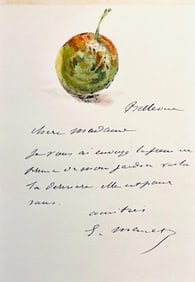 Bellevue
chere Madame
Je vous ai envoyé la fleur une
prune de mon jardin voila
la derniere. elle est pour
vous.
amitiés
E. Manet